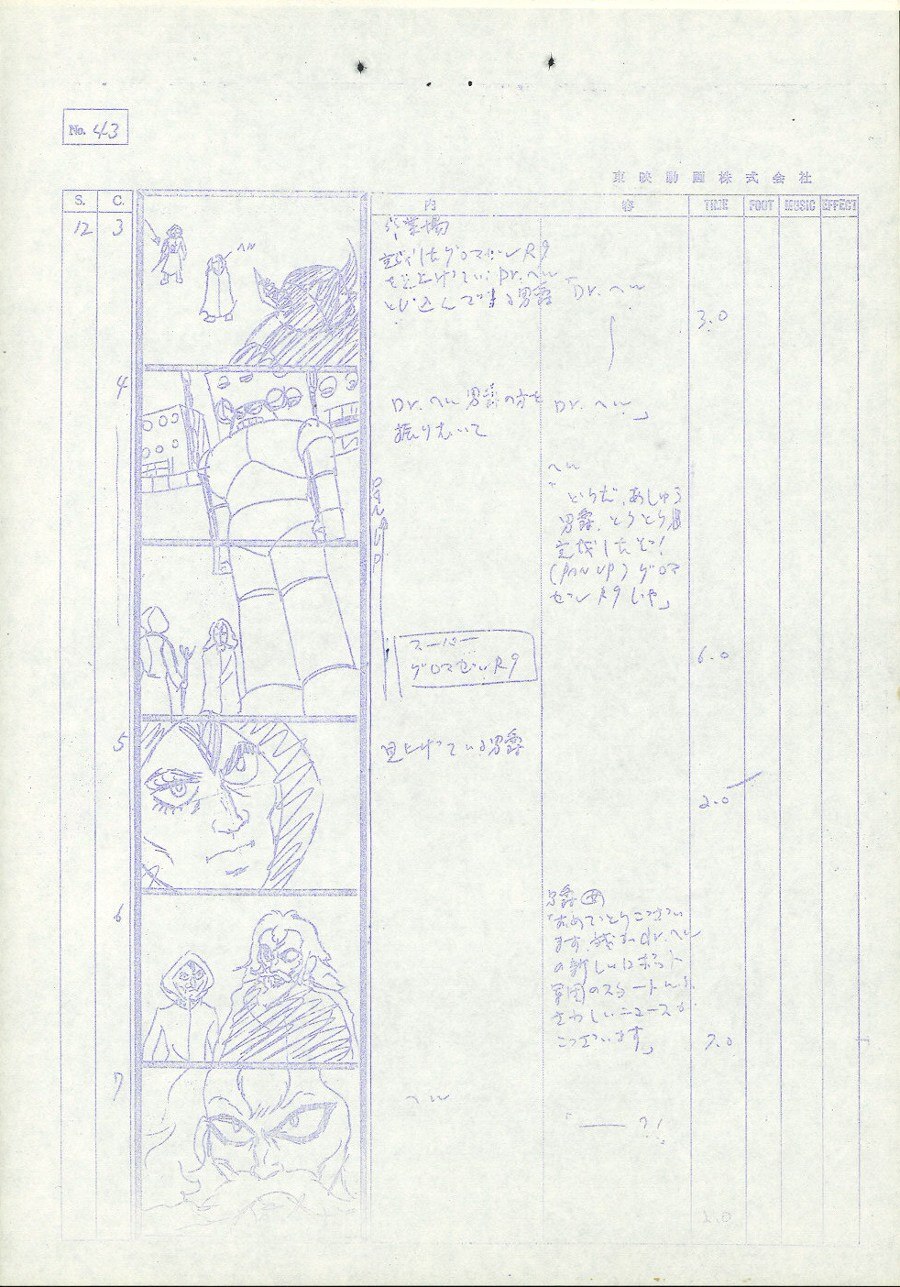 No. 43
東映動画株式会社
S. C. 内 容 TIME FOOT MUSIC EFFECT
12 3
作業場
完成したゲロマゼンR9
を見上げているDr.ヘル
とび込んでくる男爵
「Dr.ヘル
3.0
4
Dr.ヘル男爵の方を
振りむいて
Dr.ヘル」
ヘル
「どうだ、あしゅら
男爵、とうとう
完成したぞ!
(PAN UP) ゲロマ
ゼンR9じゃ」
PAN UP
スーパー
ゲロマゼンR9
6.0
5
見上げている男爵
2.0
6
男爵(女)
「おめでとうござい
ます 我がDr.ヘル
の新しいロボット
軍団のスタートにふ
さわしいニュースが
ございます」
7.0
7
ヘル
「―― ?!
1.0